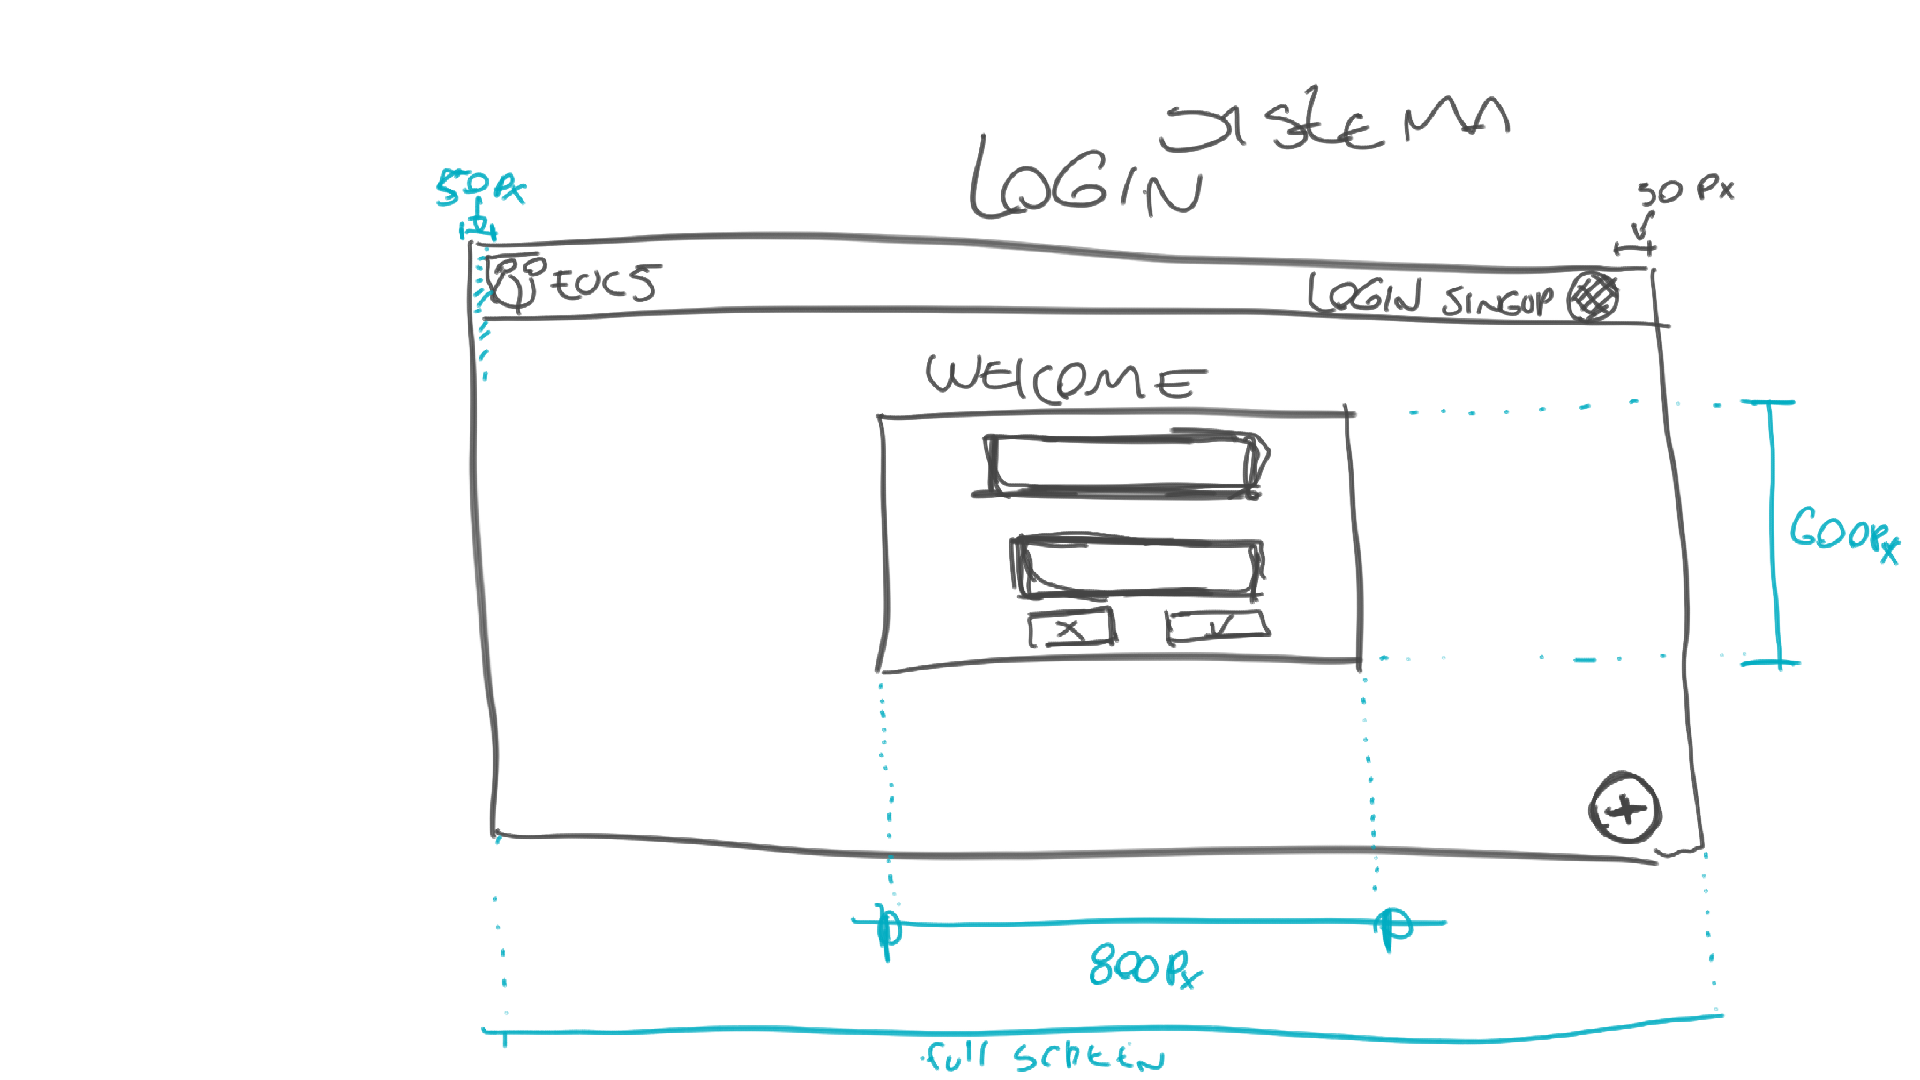 SISTEMA
LOGIN
50PX
50 PX
EUCS
LOGIN SINGUP
WELCOME
X
✓
600PX
+
800PX
full SCREEN